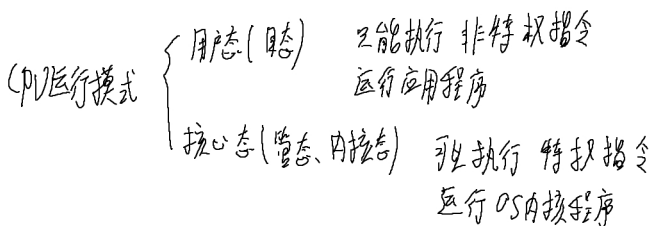 CPU运行模式
用户态(目态) 只能执行 非特权指令
运行应用程序
核心态(管态、内核态) 可以执行 特权指令
运行OS内核程序